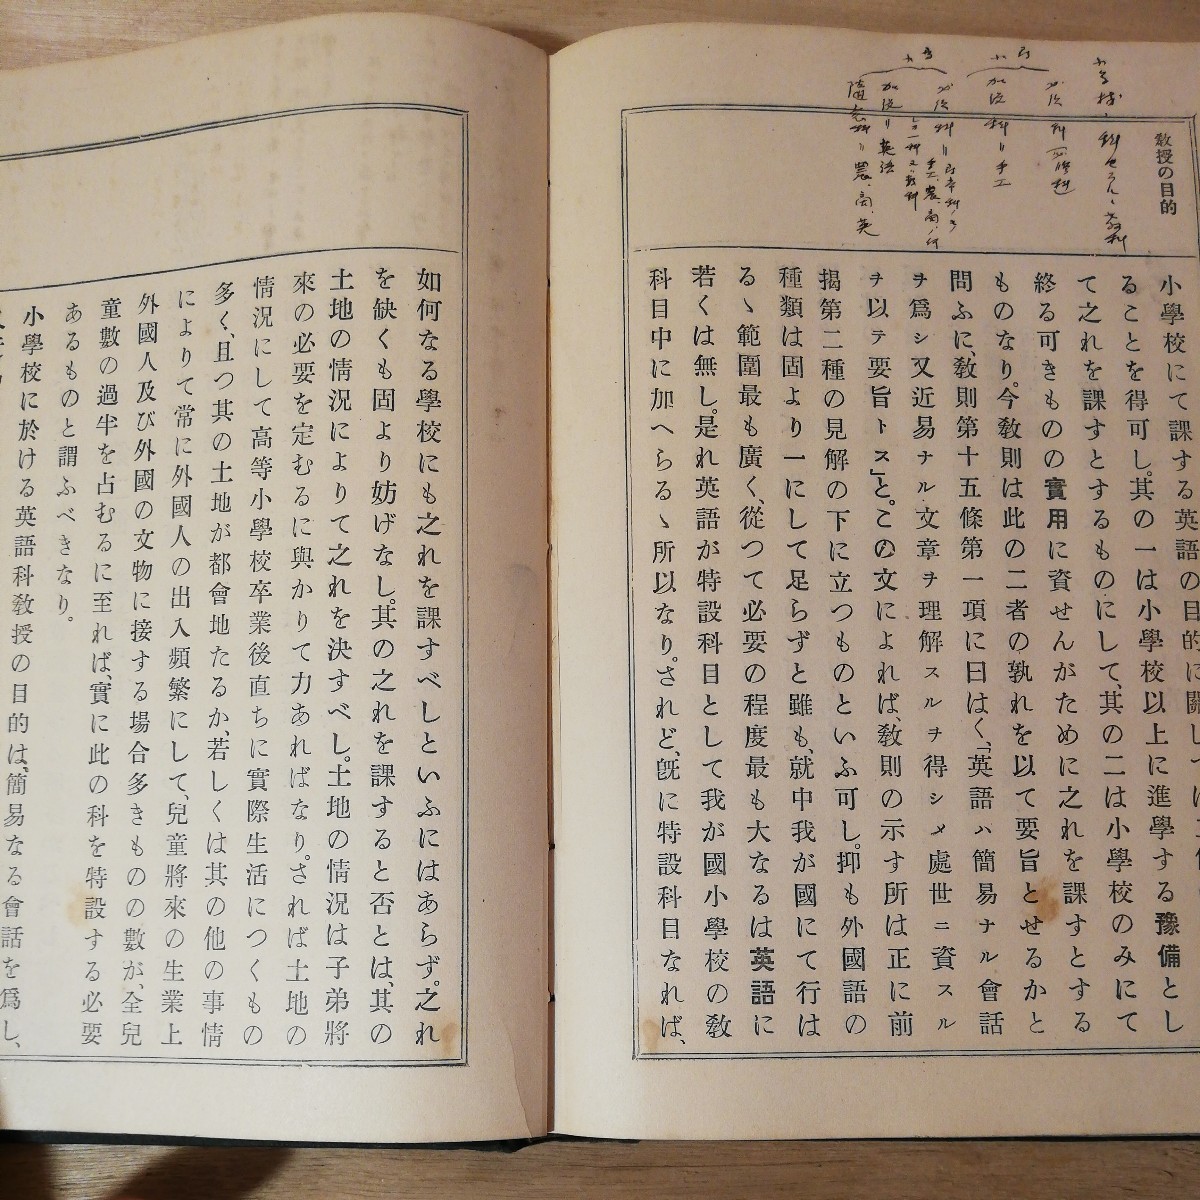 教授の目的
小學校にて課する英語の目的に關しては二
ることを得可し。其の一は小學校以上に進學する豫備とし
て之れを課すとするものにして、其の二は小學校のみにて
終る可きものの實用に資せんがために之れを課すとする
ものなり。今教則は此の二者の孰れを以て要旨とせるかと
問ふに、教則第十五條第一項に曰はく、「英語ハ簡易ナル會話
ヲ爲シ又近易ナル文章ヲ理解スルヲ得シメ處世ニ資スル
ヲ以テ要旨トス」と。この文によれば、教則の示す所は正に前
揭第二種の見解の下に立つものといふ可し。抑も外國語の
種類は固より一にして足らずと雖も、就中我が國にて行は
るゝ範圍最も廣く、從つて必要の程度最も大なるは英語に
若くは無し。是れ英語が特設科目として我が國小學校の教
科目中に加へらるゝ所以なり。されど、旣に特設科目なれば、
如何なる學校にも之れを課すべしといふにはあらず。之れ
を缺くも固より妨げなし。其の之れを課すると否とは、其の
土地の情況によりて之れを決すべし。土地の情況は子弟將
來の必要を定むるに與かりて力あればなり。されば土地の
情況にして高等小學校卒業後直ちに實際生活につくもの
多く、且つ其の土地が都會地たるか、若しくは其の他の事情
によりて常に外國人の出入頻繁にして、兒童將來の生業上
外國人及び外國の文物に接する場合多きものの數が、全兒
童數の過半を占むるに至れば、實に此の科を特設する必要
あるものと謂ふべきなり。
小學校に於ける英語科教授の目的は、簡易なる會話を爲し、